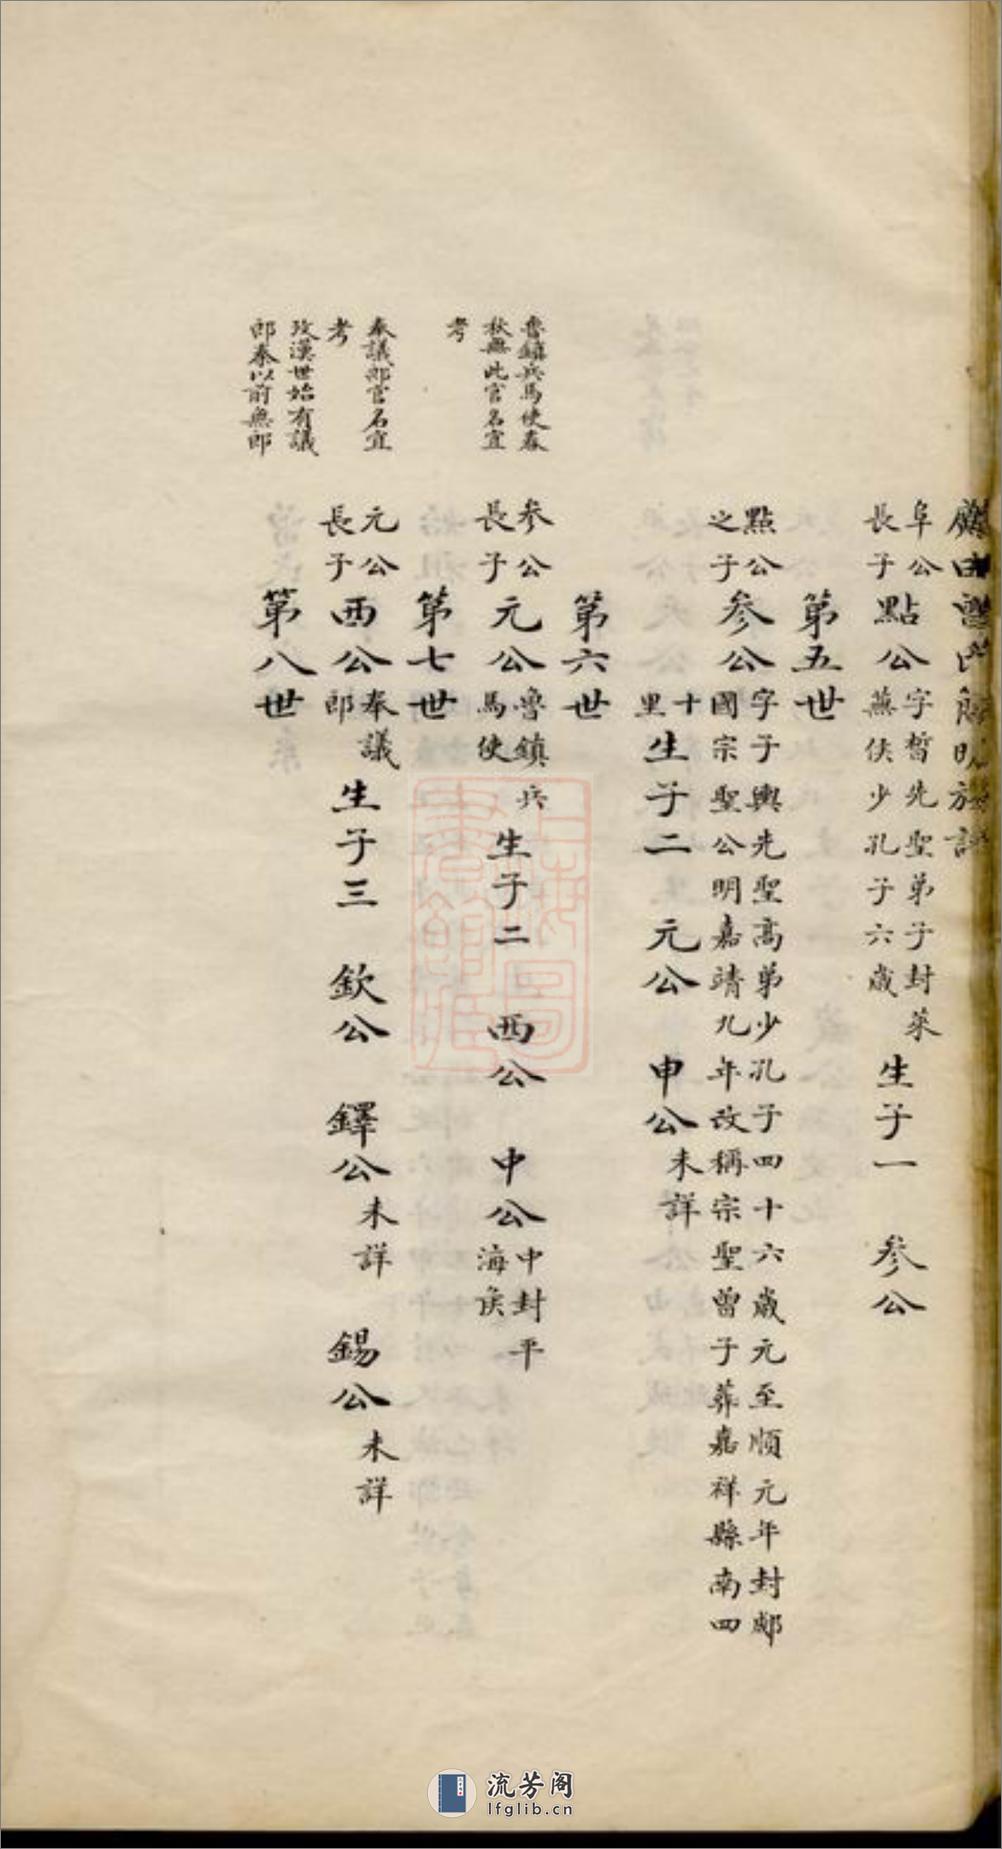 阜公長子點公字晳先聖弟子封萊蕪侯少孔子六歲生子一 參公
第五世
點公之子參公字子輿先聖高弟少孔子四十六歲元至順元年封郕國宗聖公明嘉靖九年改稱宗聖曾子葬嘉祥縣南四十里生子二 元公 申公未詳
第六世
魯鎮兵馬使春秋無此官名宜考
參公長子元公魯鎮兵馬使生子二 西公 中公中封平海矦
第七世
奉議郎官名宜考
攷漢世始有議郎秦以前無郎
元公長子西公奉議郎生子三 欽公 鐸公未詳 錫公未詳
第八世
上海圖書館藏
流芳阁
lfglib.cn